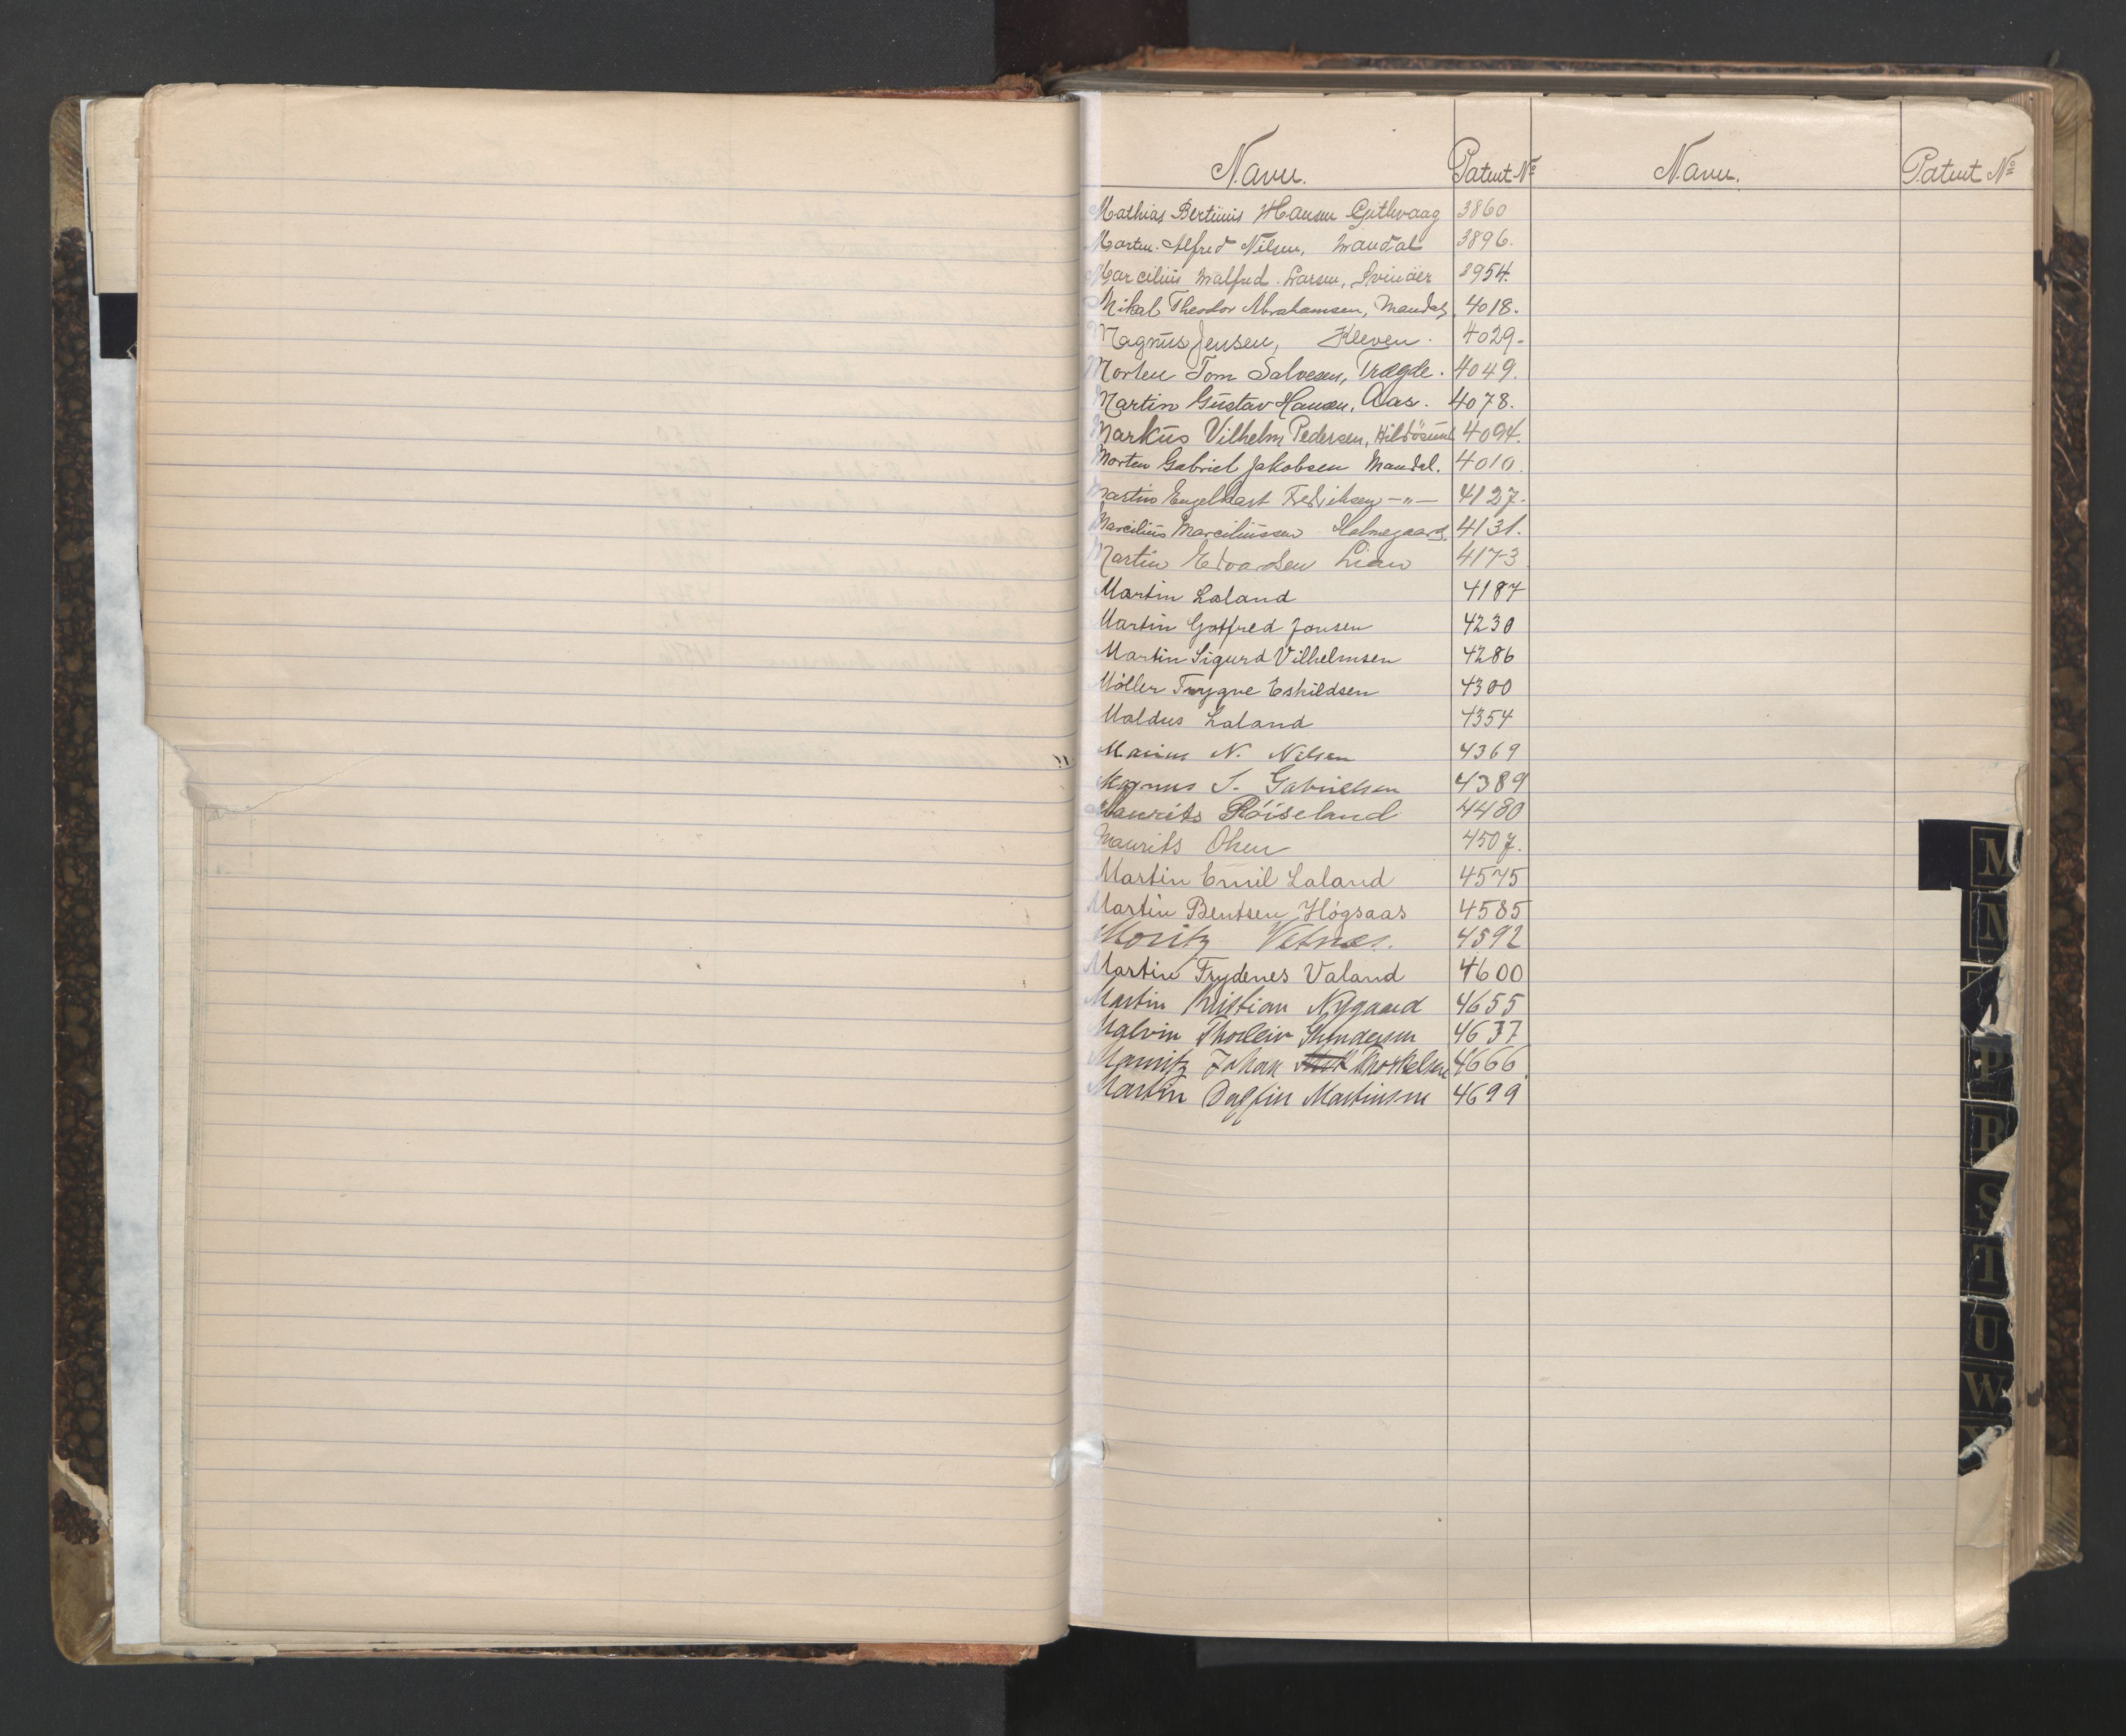 Navn. Patent No Navn. Patent No
Mathias Bertinus Hansen 3860
Morten Alfred Nilsen, Mandal 3896.
Marcelius Walfred Larsen, Svinöer 3954.
Mikal Theodor Abrahamsen, Mandal, 4018.
Magnus Jensen, Kleven. 4029.
Morten Tom Salvesen, Trægde. 4049.
Martin Gustav Hansen, Aas. 4078.
Markus Vilhelm Pedersen, Hildösund 4094.
Morten Gabriel Jakobsen Mandal. 4010.
Martin Engelhart Fredriksen -"- 4127.
Marcilius Marciliussen Holmegaard. 4131.
Martin Edvardsen Lian 4173
Martin Laland 4187
Martin Gotfred Jonsen 4230
Martin Sigurd Vilhelmsen 4286
Möller Trygve Eskildsen 4300
Maldus Laland 4354
Marius N. Nilsen 4369
Magnus S. Gabrielsen 4389
Maurits Röiseland 4480
Maurits Olsen 4507.
Martin Emil Laland 4575
Martin Bentsen Högsaas 4585
Moritz Vetnes. 4592
Martin Frydenes Valand 4600
Martin Kristian Nygaard 4655
Malvin Thorleiv Gundersen 4637
Mauritz Johan Thorkelsen 4666.
Martin Dagfin Martinsen 4699
M
N
P
R
S
T
U
W